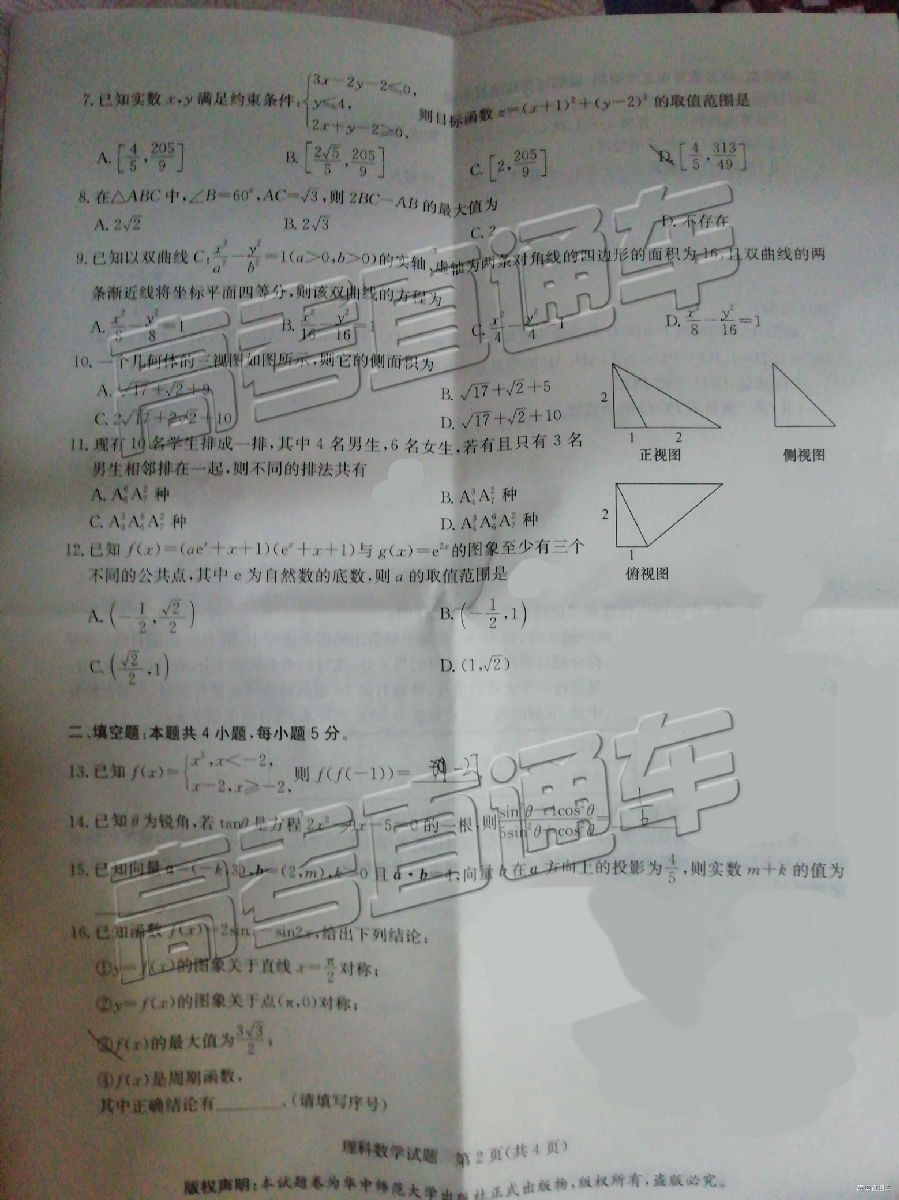 7.已知实数 x,y 满足约束条件:{3x-2y-2⩽0, y⩽4, 2x+y-2⩾0, 则目标函数 z=(x+1)²+(y-2)² 的取值范围是
A.[4/5,205/9] B.[2√5/5,205/9] C.[2,205/9] D.[4/5,313/49]
8.在△ABC 中,∠B=60°,AC=√3,则 2BC-AB 的最大值为
A.2√2 B.2√3 C.2 D.不存在
9.已知以双曲线 C:x²/a²-y²/b²=1(a>0,b>0)的实轴、虚轴为两条对角线的四边形的面积为 16,且双曲线的两
条渐近线将坐标平面四等分,则该双曲线的方程为
A.x²/8-y²/8=1 B.x²/16-y²/16=1 C.x²/4-y²/4=1 D.x²/8-y²/16=1
10.一个几何体的三视图如图所示,则它的侧面积为
A.√17+√2+9 B.√17+√2+5
C.2√17+2√2+10 D.√17+√2+10
2 1 2 正视图 侧视图
2 1 俯视图
11.现有 10 名学生排成一排,其中 4 名男生,6 名女生,若有且只有 3 名
男生相邻排在一起,则不同的排法共有
A.A⁶₆A²₇ 种 B.A³₄A²₇ 种
C.A³₃A⁶₆A²₇ 种 D.A³₄A⁶₆A²₇ 种
12.已知 f(x)=(aeˣ+x+1)(eˣ+x+1)与 g(x)=e²ˣ的图象至少有三个
不同的公共点,其中 e 为自然数的底数,则 a 的取值范围是
A.(-1/2,√2/2) B.(-1/2,1)
C.(√2/2,1) D.(1,√2)
二、填空题:本题共 4 小题,每小题 5 分。
13.已知 f(x)={x³,x<-2, x-2,x⩾-2, 则 f(f(-1))= -27
14.已知 θ 为锐角,若 tanθ 是方程 2x² x-5=0 的一根,则
15.已知向量 a=(-k,3),b=(2,m),k>0 且 a·b=4,向量 b 在 a 方向上的投影为 4/5,则实数 m+k 的值为
16.已知函数 f(x)=2sin sin2x,给出下列结论:
①y=f(x)的图象关于直线 x=π/2 对称;
②y=f(x)的图象关于点(π,0)对称;
③f(x)的最大值为3√3/2;
④f(x)是周期函数,
其中正确结论有________.(请填写序号)
理科数学试题 第 2 页(共 4 页)
版权声明:本试题卷为华中师范大学出版社正式出版物,版权所有,盗版必究。
高考直通车
高考直通车